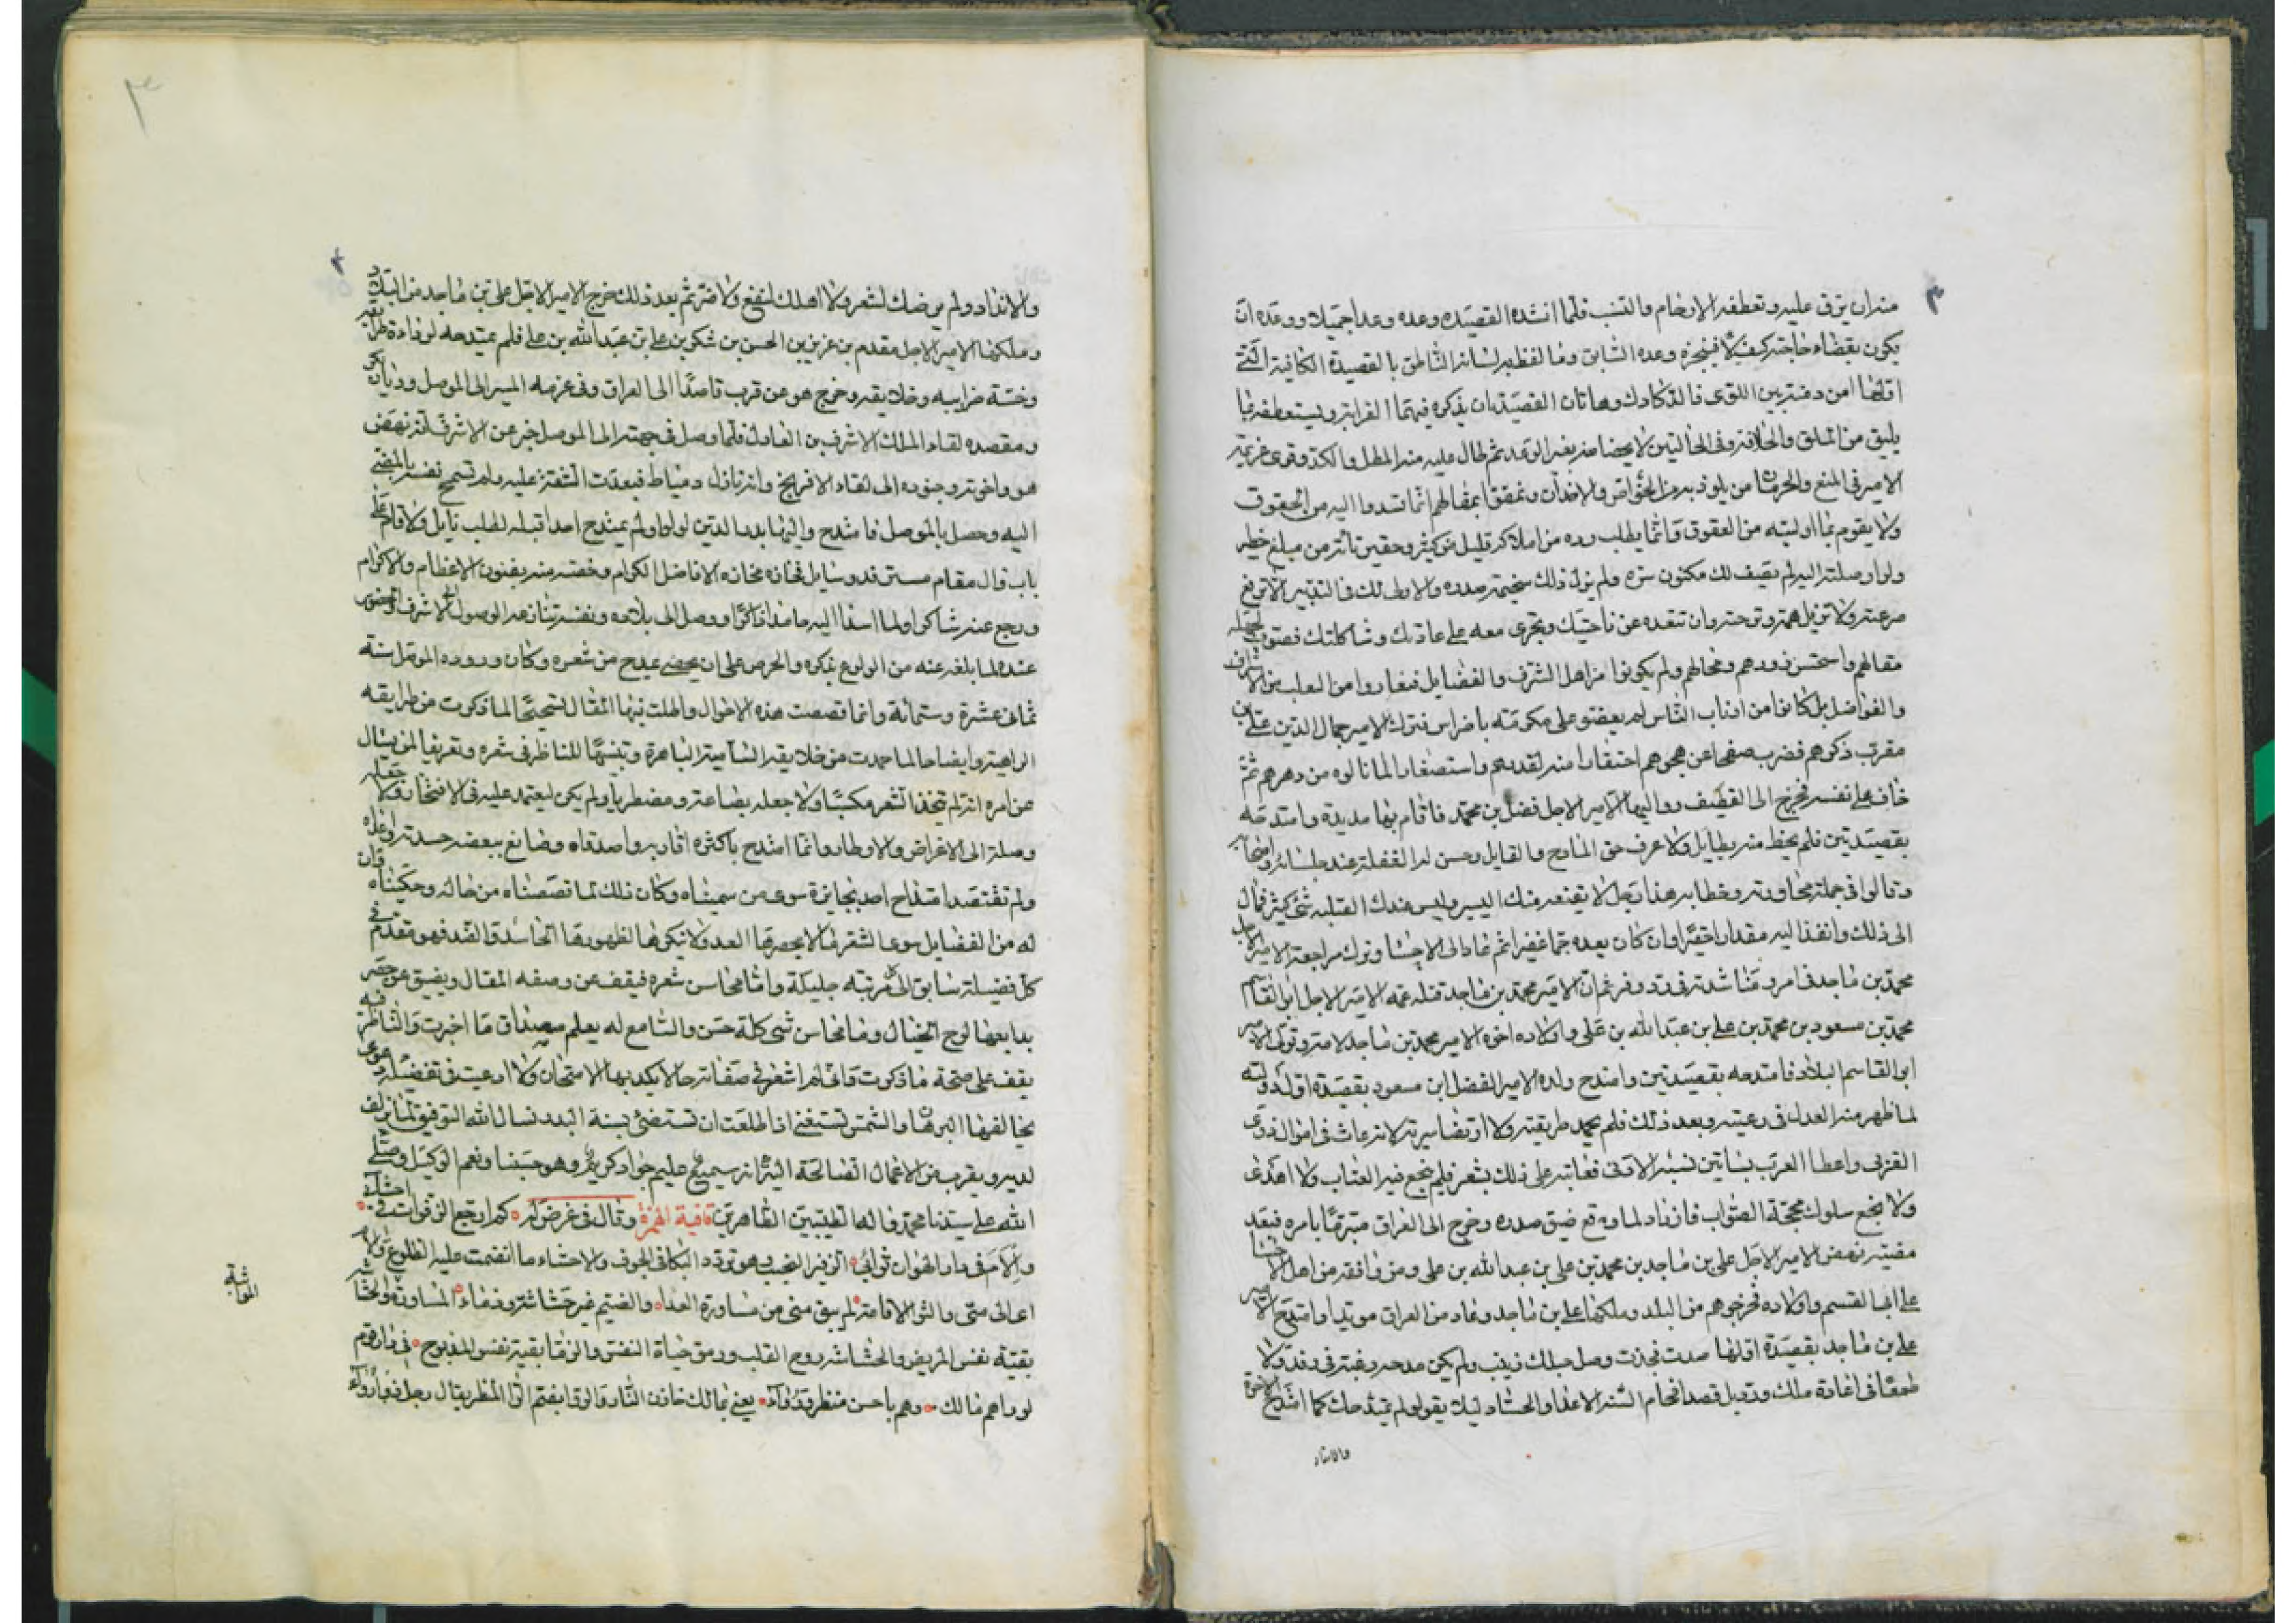 ٣
منه ان يرق عليه وتعطفه الارحام والنسب فلما انشده القصيده وعده وعدا جميلا ووعده ان
يكون بقضاء حاجته كيف لا فينجزه وعده السابق وما لفظ به لسانه الناطق بالقصيدة الكافية التي
اولها امن دمنة بين اللوى فالدكادك وهاتان القصيدتان يذكره فيهما القرابة ويستعطفه بما
يليق من الملق والخلافة وفى الحالتين لا يحضا منه بغير الوعد ثم طال عليه منه المطل والكد وقوى عزيمة
الامير فى المنع والحرمان من يلوذ به من الخواص والاخدان ونمقوا بمقالهم انما تسدوا اليه من الحقوق
ولا يقوم بما اوليته من العقوق وانما يطلب رده من املاكه قليل من كثير وحقير تافه من مبلغ خطير
ولو اوصلته اليه لم يصف لك مكنون سره ولم يزل ذلك سخيمة صدره والاولى لك فى التدبير الا ترفع
صرعته ولا تزيل همه وترحته وان تبعده عن ناحيتك وتجرى معه على عادتك وشاكلتك فصوب
مقالهم واستحسن زورهم ومحالهم ولم يكونوا من اهل الشرف والفضايل فيغاروا من
والفواضل بل كانوا من اذناب الناس لم يعضو على مكرمة باضراس فترك الامير جمال الدين على بن
مقرب ذكرهم فضرب صفحا عن هجوهم احتقارا منه لقدرهم واستصغارا لما نالوه من دهرهم ثم
خاف على نفسه فخرج الى القطيف وواليها الامير الاجل فضل بن محمد فاقام بها مديدة وامتدحه
بقصيدتين فلم يحظ منه بطايل ولا عرف حق المادح والقايل وحسن له الغفلة عنه جلسائه واصحابه
وقالوا فى جملة محاورته وخطابه هذا رجل لا يقنعه منك اليسير وليس عندك القبله شئ كثير فمال
الى ذلك وانفذ اليه مقدارا حقيرا وان كان يعده جما غفيرا ثم عاد الى الاحسا وترك مراجعة الامير الاجل
محمد بن ماجد فى امره ومناشدته فى رد وفره ثم ان الامير محمد بن ماجد قتله عمه الامير الاجل ابو القاسم
محمد بن مسعود بن محمد بن على بن عبد الله بن على واولاده اخوه الامير محمد بن ماجد لامه وتولى الامير
ابو القاسم البلاد فامتدحه بقصيدتين وامتدح ولده الامير الفضل ابن مسعود بقصيدة اول دولته
لما ظهر منه العدل فى رعيته وبعد ذلك فلم يحمد طريقته ولا ارتضا سيرته لانه عاث فى اموال ذوى
القربى واعطا العرب بساتين نسبه الادنى فعاتبه على ذلك بشعر فلم ينجع فيه العتاب ولا اهدى
ولا ينجع سلوك محجة الصواب فازداد لما وقع ضيق صدره وخرج الى العراق متبرما بامره فبعد
مضيه نهض الامير الاجل على بن ماجد بن محمد بن على بن عبد الله بن على ومن وافقه من اهل الاحسا
على ابى القسم واولاده فخرجوهم من البلد وملكها على بن ماجد وعاد من العراق وامتدح الامير
على بن ماجد بقصيدة اولها صدت فجذت وصل حبلك زينب ولم يكن مدحه رغبة فى رفده ولا
طمعا فى اعادة ملك وتدبيل قصد افحام السنه الاعدا والحساد ليلا يقولو لم يمتدحك كما امتدح الاخوة
والانداد
٣
٤
والانداد ولم يرضك لشعره ولا اهلك لنفع ولا ضر ثم بعد ذلك خرج الامير الاجل على بن ماجد من البلاد
وملكها الامير الاجل مقدم بن عزيز بن الحسن بن شكر بن على بن عبد الله بن على فلم يمتدحه لرداءة طرايقه
وخسة ضرايبه وخلايقه وخرج هو عن قرب قاصدا الى العراق وفى عزمه المسير الى الموصل وديار بكر
ومقصده لقاء الملك الاشرف بن العادل فلما وصل فى جهته الى الموصل خبر عن الاشرف انه نهض
هو واخوته وجنوده الى لقاء الافرنج وانه نازل دمياط فبعدت الشقة عليه ولم تسمح نفسه بالمضى
اليه وحصل بالموصل فامتدح واليها بدر الدين لولو ولم يمتدح احدا قبله لطلب نايل ولا قام على
باب وال مقام مسترفد وسايل فجازه مجازه الافاضل الكرام وخصه منه بفنون الاعظام والاكرام
ورجع عنه شاكرا ولما اسدا اليه حامدا ذاكرا ووصل الى بلاده ونفسه تنازعه الوصول الى الاشرف والحضور
عنده لما بلغه عنه من الولوع بذكره والحرص على ان يحضى بمدح من شعره وكان وروده الموصل سنة
ثمانى عشرة وستمائة وانما قصصت هذه الاحوال واطلت فيها المقال تسحيحا لما ذكرت من طرايقه
الراهية وايضاحا لما حمدت من خلايقه السامية الباهرة وتنبيها للناظر فى شعره وتعريفا لمن يسال
عن امره انه لم يتخذ الشعر مكسبا ولا جعله بضاعة ومضطربا ولم يكن ليعتمد عليه فى الافتخار ولا جعله
وصلة الى الاغراض والاوطار وانما امتدح باكثره اقاربه واصدقاه وصانع ببعضه حسدته واعداه
ولم تقتصد امتداح احد بجايزة سوى من سميناه وكان ذلك لما قصصناه من حاله وحكيناه فان
له من الفضايل سوى الشعر ما لا يحصرها العدد ولا ينكرها لظهورها الحاسد والضد فهو متقدم فى
كل فضيلة سابق الى كل مرتبة جليلة واما محاسن شعره فيقف عن وصفه المقال ويضيق عن حصر
بدايعها لوح الخيال وما محاسن شى كلة حسن والسامع له يعلم مصداق ما اخبرت والناظر فيه
يقف على صحة ما ذكرت فانى لم اشعر فى صفاته حالا يكذبها الامتحان ولا ادعيت فى تفضيله دعوى
يخالفها البرهان والشمس تستغنى اذا طلعت ان تستضئ بسنة البدر نسال الله التوفيق لما يزلف
لديه ويقرب من الاعمال الصالحة اليه انه سميع عليم جواد كريم وهو حسبنا ونعم الوكيل وصلى
الله على سيدنا محمد واله الطيبين الطاهرين قافية الهمزة وقال فى غرض له كم ارتجع الزفرات فى احشائى
والام فى دار الهوان ثوائى الزفير النحيب هو تردد البكا فى الجوف والاحشاء ما انضمت عليه الضلوع والام
اعانى متى والثوا الاقامة لم يبق منى من مساورة العدا والضيم غير حشاشة وذماء المساورة والحشاشة
بقية نفس المريض والحشاشه روح القلب ورمق حياة النفس والذما بقية نفس المذبوح فى دار قوم
لو راهم مالك وهم باحسن منظر ورواء يعنى بمالك خازن النار والروا بضم الرا المنظر يقال رجل ذو رواء
المواثبة